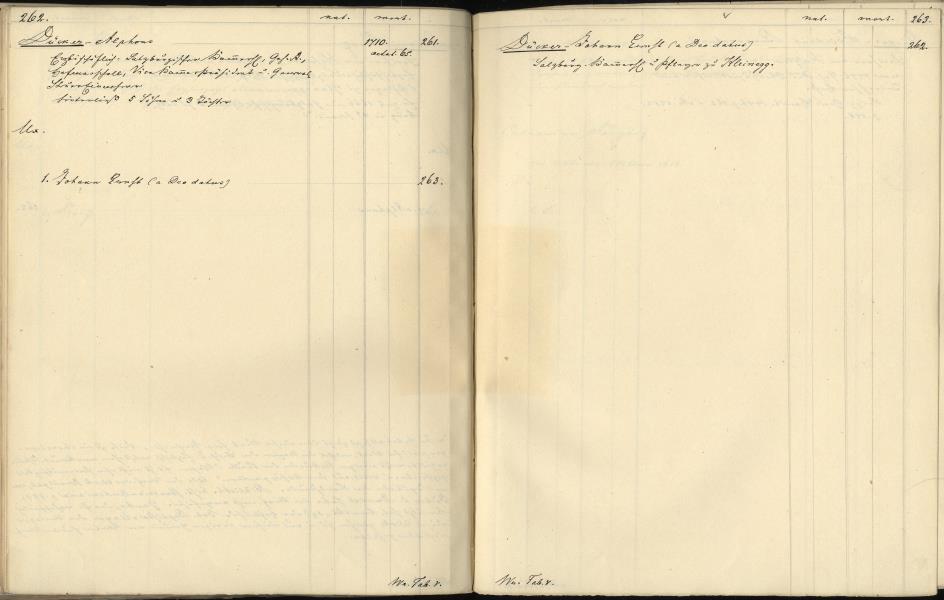 262. nat. mort.
Dücker-Alphons 1710. 261.
Erzbischöflich-Salzburgischer Kämmerer, Geh. R., aetat. 65.
Hofmarschall, Vice Kammerpräsident u. General
Steuereinnehmer
hinterließ 5 Söhne u 3 Töchter
Ux.
1. Johann Ernst (a Deo datus) 263.
Wn. Tab. v.
nat. mort. 263.
Dücker-Johann Ernst (a Deo datus) 262.
Salzburg. Kämmerer u Pfleger zu Kleinegg.
Wn. Tab. v.